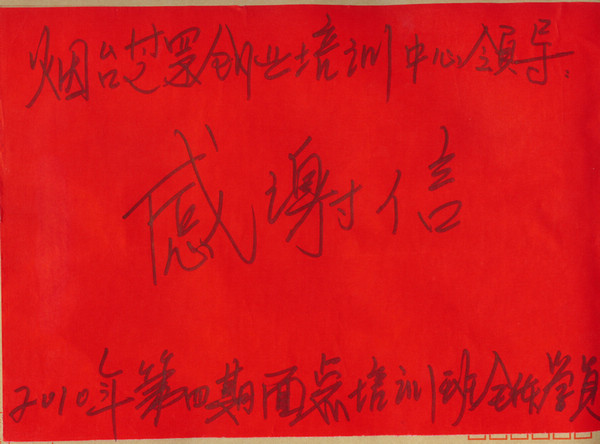 烟台芝罘创业培训中心领导:
感谢信
2010年第四期面点培训班全体学员